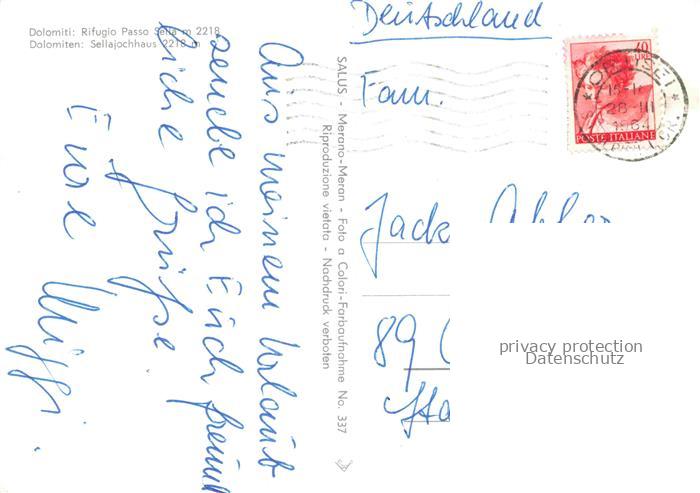 Dolomiti: Rifugio Passo Sella m 2218
Dolomiten: Sellajochhaus 2218 m
Aus meinem Urlaub
sende ich Euch freund
liche Grüße.
Eure
SALUS - Merano-Meran - Foto a Colori-Farbaufnahme No. 337
Riproduzione vietata - Nachdruck verboten
Deutschland
Fam.
Jack
89
40
LIRE
POSTE ITALIANE
ORTISEI
28 III
1964
privacy protection
Datenschutz